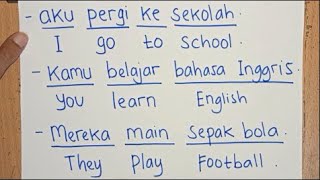 - aku pergi ke sekolah.
I go to School.
- Kamu belajar bahasa Inggris.
You learn English
- Mereka main sepak bola.
They Play Football.